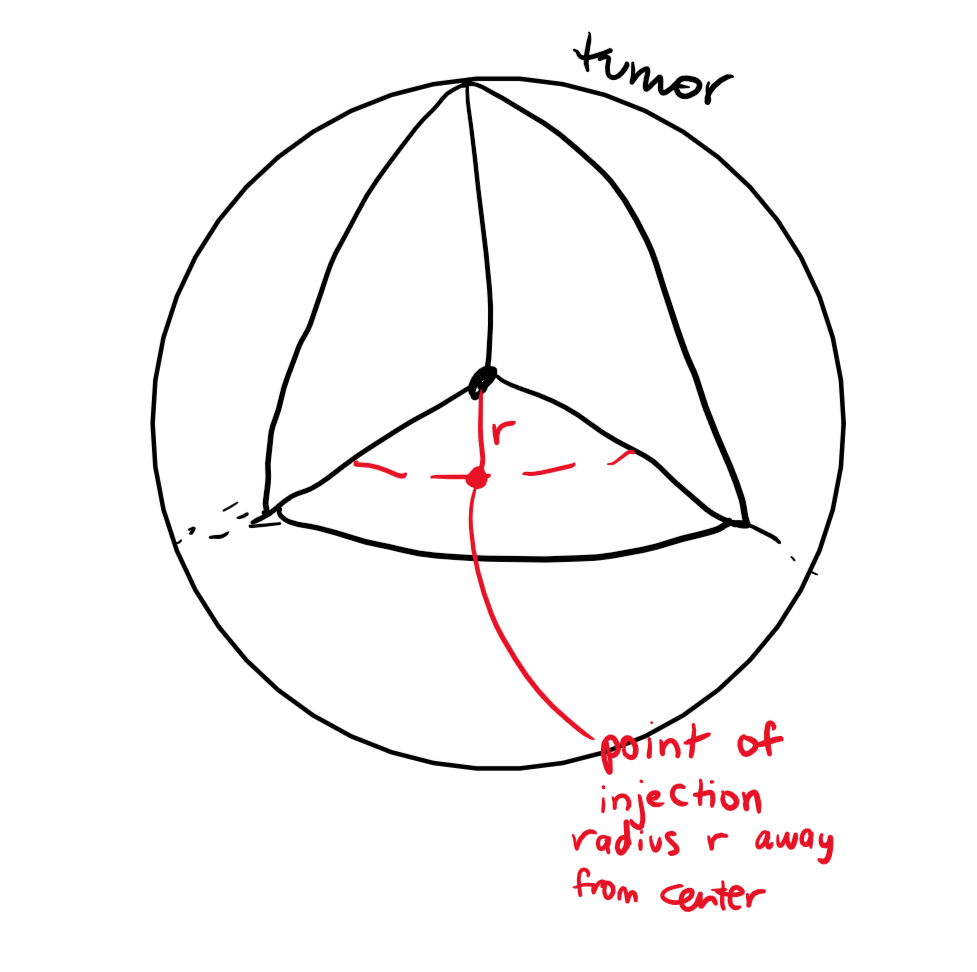 tumor
r
point of
injection
radius r away
from center